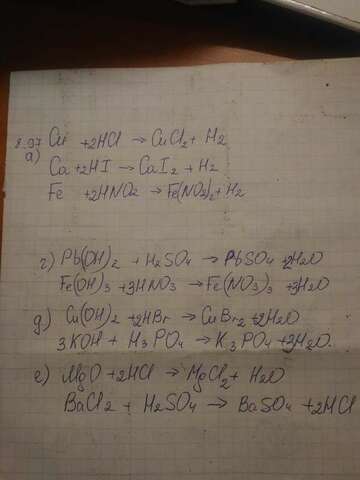 8.97 Cu +2HCl → CuCl2 + H2
а) Ca +2HI → CaI2 + H2
Fe +2HNO2 → Fe(NO2)2 + H2
г) Pb(OH)2 + H2SO4 → PbSO4 +2H2O
Fe(OH)3 +3HNO3 → Fe(NO3)3 +3H2O
д) Cu(OH)2 +2HBr → CuBr2 +2H2O
3KOH + H3PO4 → K3PO4 +3H2O.
е) MgO +2HCl → MgCl2 + H2O
BaCl2 + H2SO4 → BaSO4 +2HCl